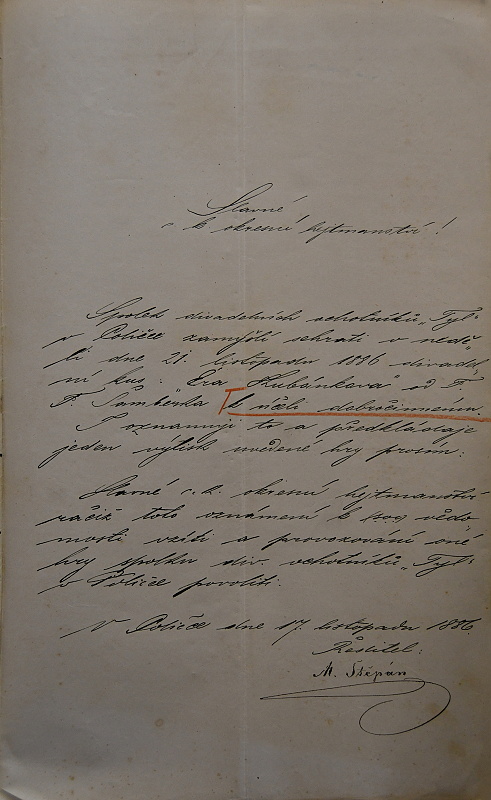 Slavné
c. k. okresní hejtmanství!
Spolek divadelních ochotníků „Tyl“
v Poličce zamýšlí sehrati v nedě-
li dne 21. listopadu 1886 divadel-
ní kus: „Éra Kubánkova“ od F.
F. Šamberka k účeli dobročinnému.
I oznamuji to a předkládaje
jeden výtisk uvedené hry prosím:
Slavné c. k. okresní hejtmanství
račiž toto oznámení k vědo-
mosti vzíti a provozování oné
hry spolku div. ochotníků „Tyl“
v Poličce povoliti.
V Poličce dne 17. listopadu 1886.
Ředitel:
M. Štěpán